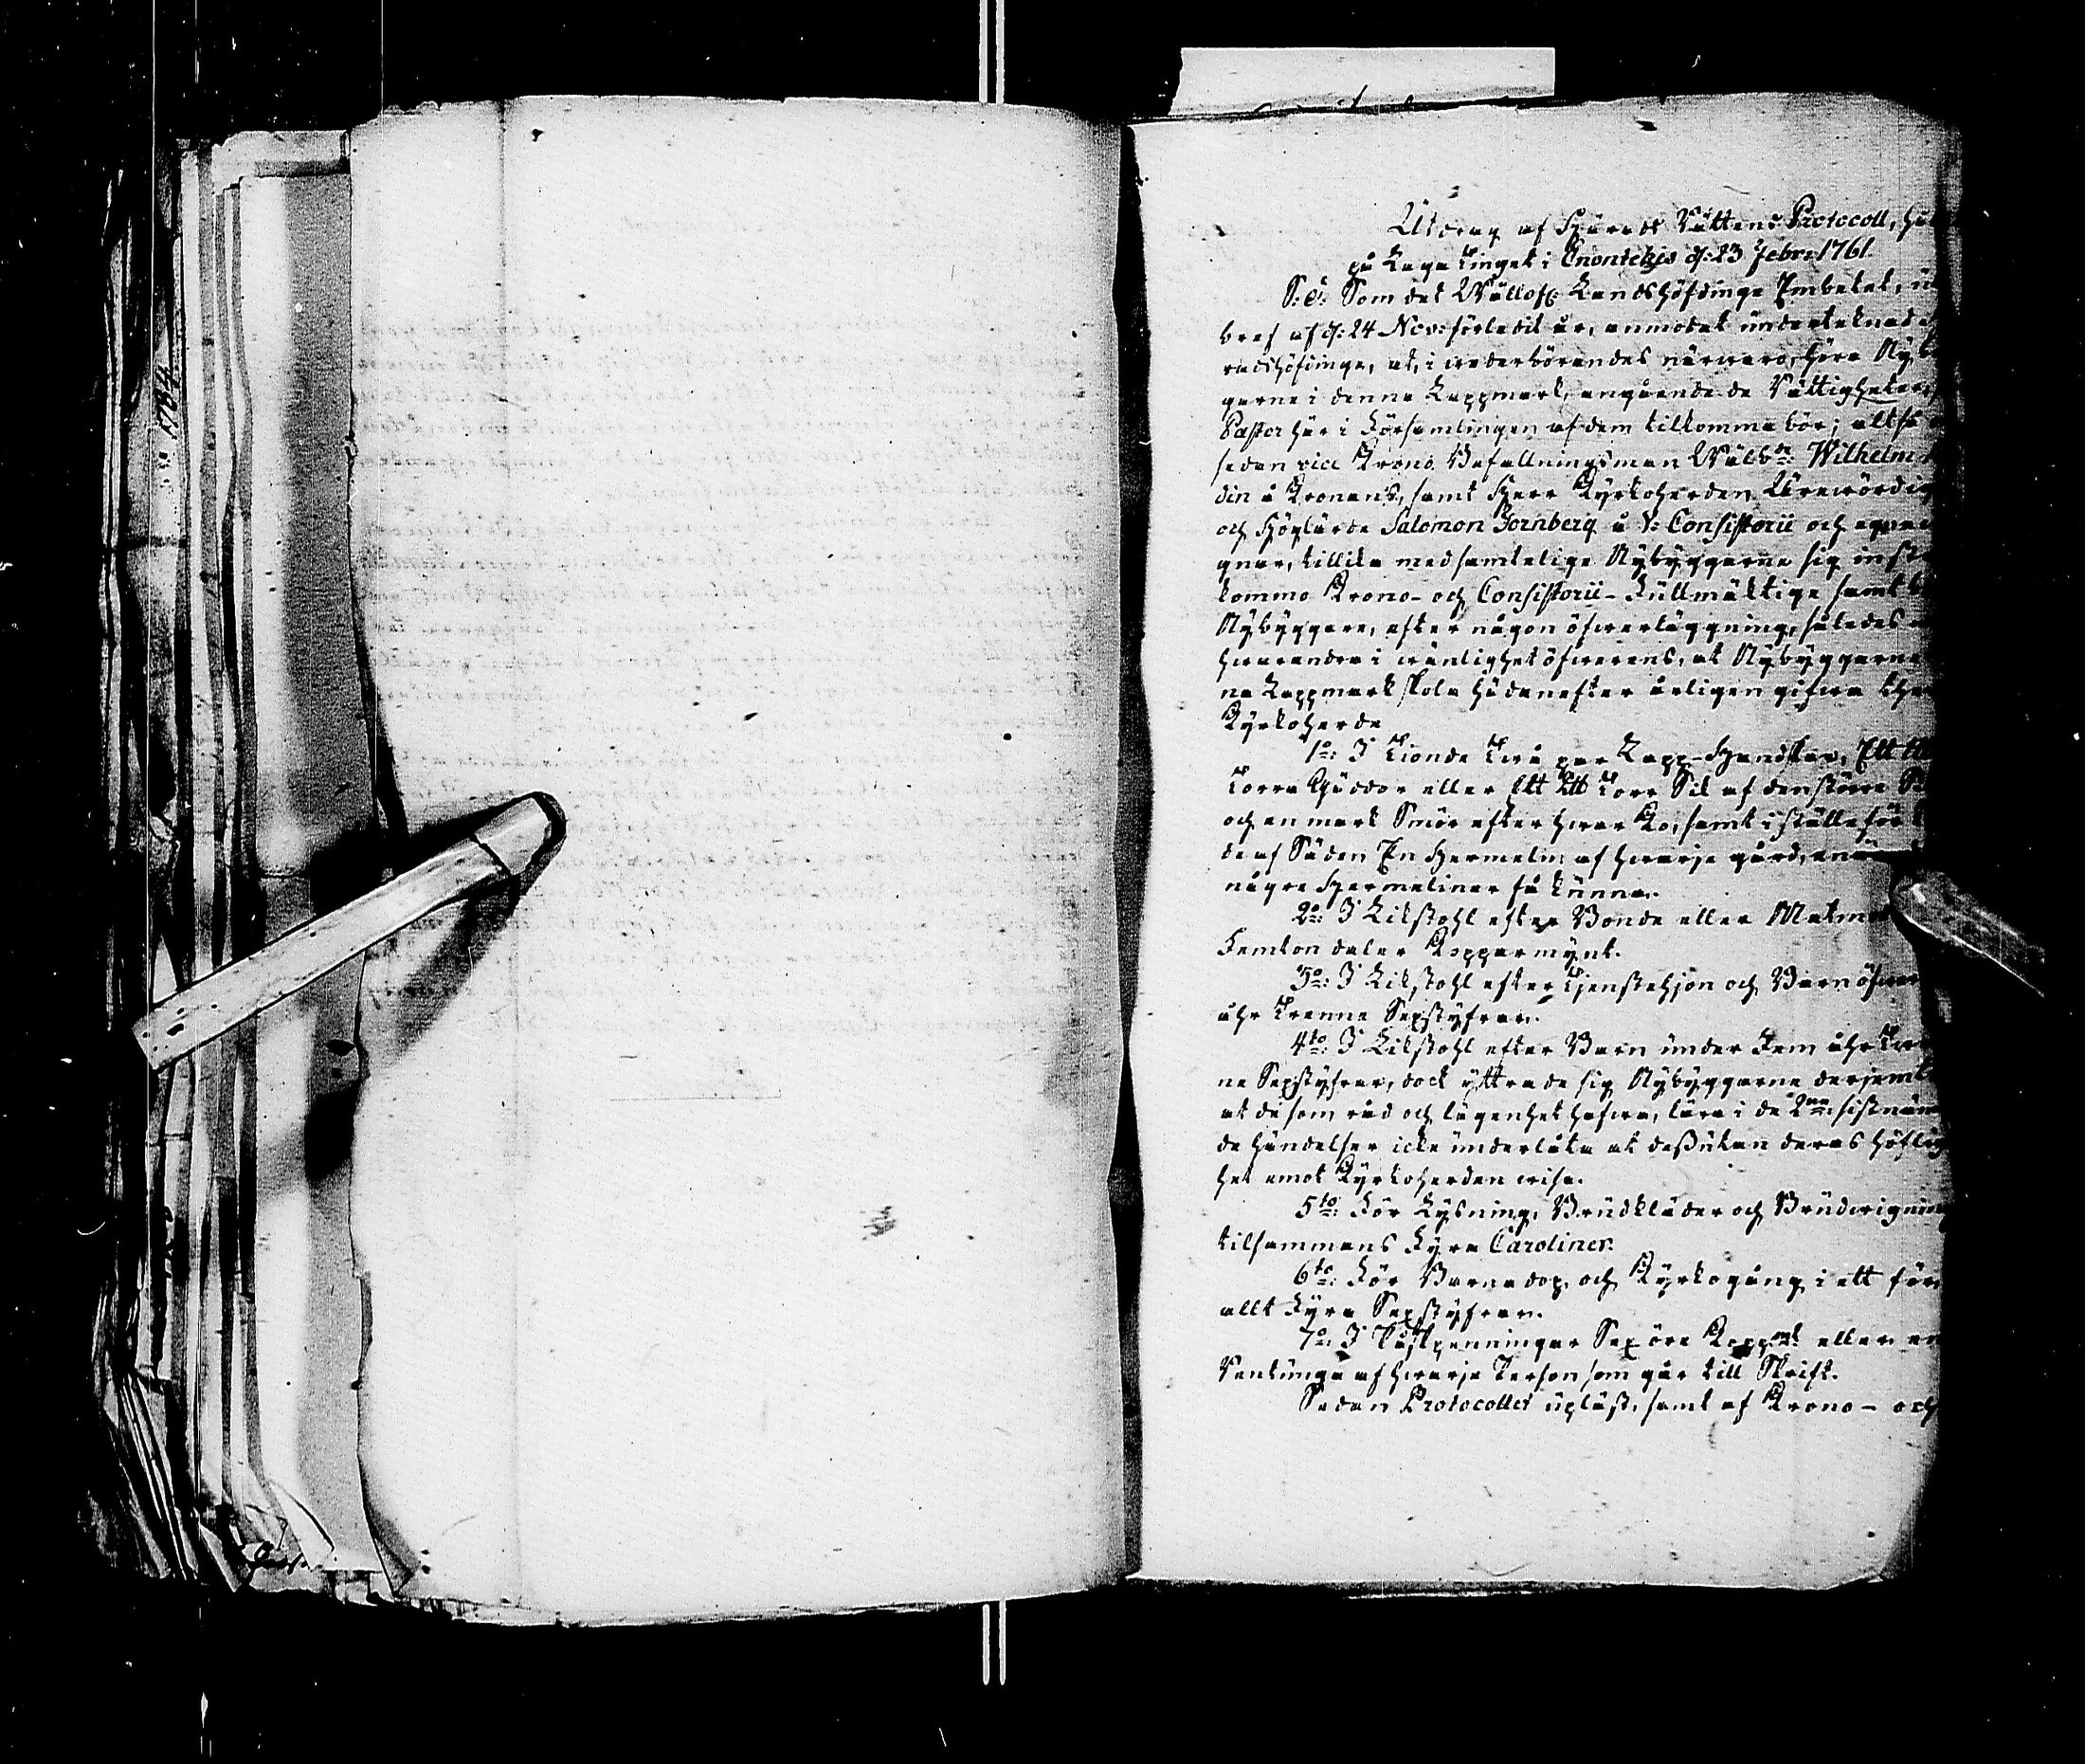 1784
Utdrag af Härads Rättens Protocoll, hå
på Laga Tinget i Enontekis d: 23 Febr: 1761
S: D: Som det Wällofl: Landshöfdinge Embetet, u
bref af d: 24 Nov: förledit år, anmodat underteknad
radshöfdinge, at, i wederbörandes närwaro, höra Nyb
garne i denna Lappmark, angående de Rättigheter,
Pastor här i Församlingen af dem tilkomma bör; altså
sedan vice Krono Befallningsman Wälb:de Wilhelm
din å Kronans, samt Herr Kyrkoherden Ärewördig
och Höglärde Salomon Tornberg å V: Consistorii och egna
gnar, tillika med samtelige Nybyggarne sig inste
kommo Krono- och Consistorii- Fullmäktige samt
Nybyggare, efter någon öfwerläggning, således
hwarandra i wänlighet öfwerens, at Nybyggarne
na Lappmark skola hädanefter årligen gifwa
Kyrkoherde
1o: I Tionde Twå par Lapp-Handskar, Ett
Torra Gäddor eller Ett Ltt Torr Sik af den större
och en mark Smör efter hwar Ko, samt i stället för
de af Säden En Hermelin af hwarje gård,
några Hermeliner få kunna.
2o: I Likstohl efter Bonde eller Matmo
Femton daler Koppermynt.
3o: I Likstohl efter tjenstehjon och Barn öfwer
åhr Trenne Sexstyfrar.
4to: I Likstohl efter Barn under Fem åhr Twen
ne Sexstyfrar, dock yttrade sig Nybyggarne derjemte
at de som råd och lägenhet hafwa, lära i de 2ne: sistnäm
de händelser icke underlåta at dessutan deras höflig
het emot Kyrkoherden wisa.
5to: För Lysning, Brudkläder och Brudwigning
tilsammans Fyra Caroliner.
6to: För Barnadop, och Kyrkogång i ett för
allt Fyra Sexstyfrar.
7o: I Påskpenningar Sex öre Kopp:mt eller en
Ventunga af hwarje Person som går till Skrift.
Sedan Protocollet upläst, samt af Krono- och